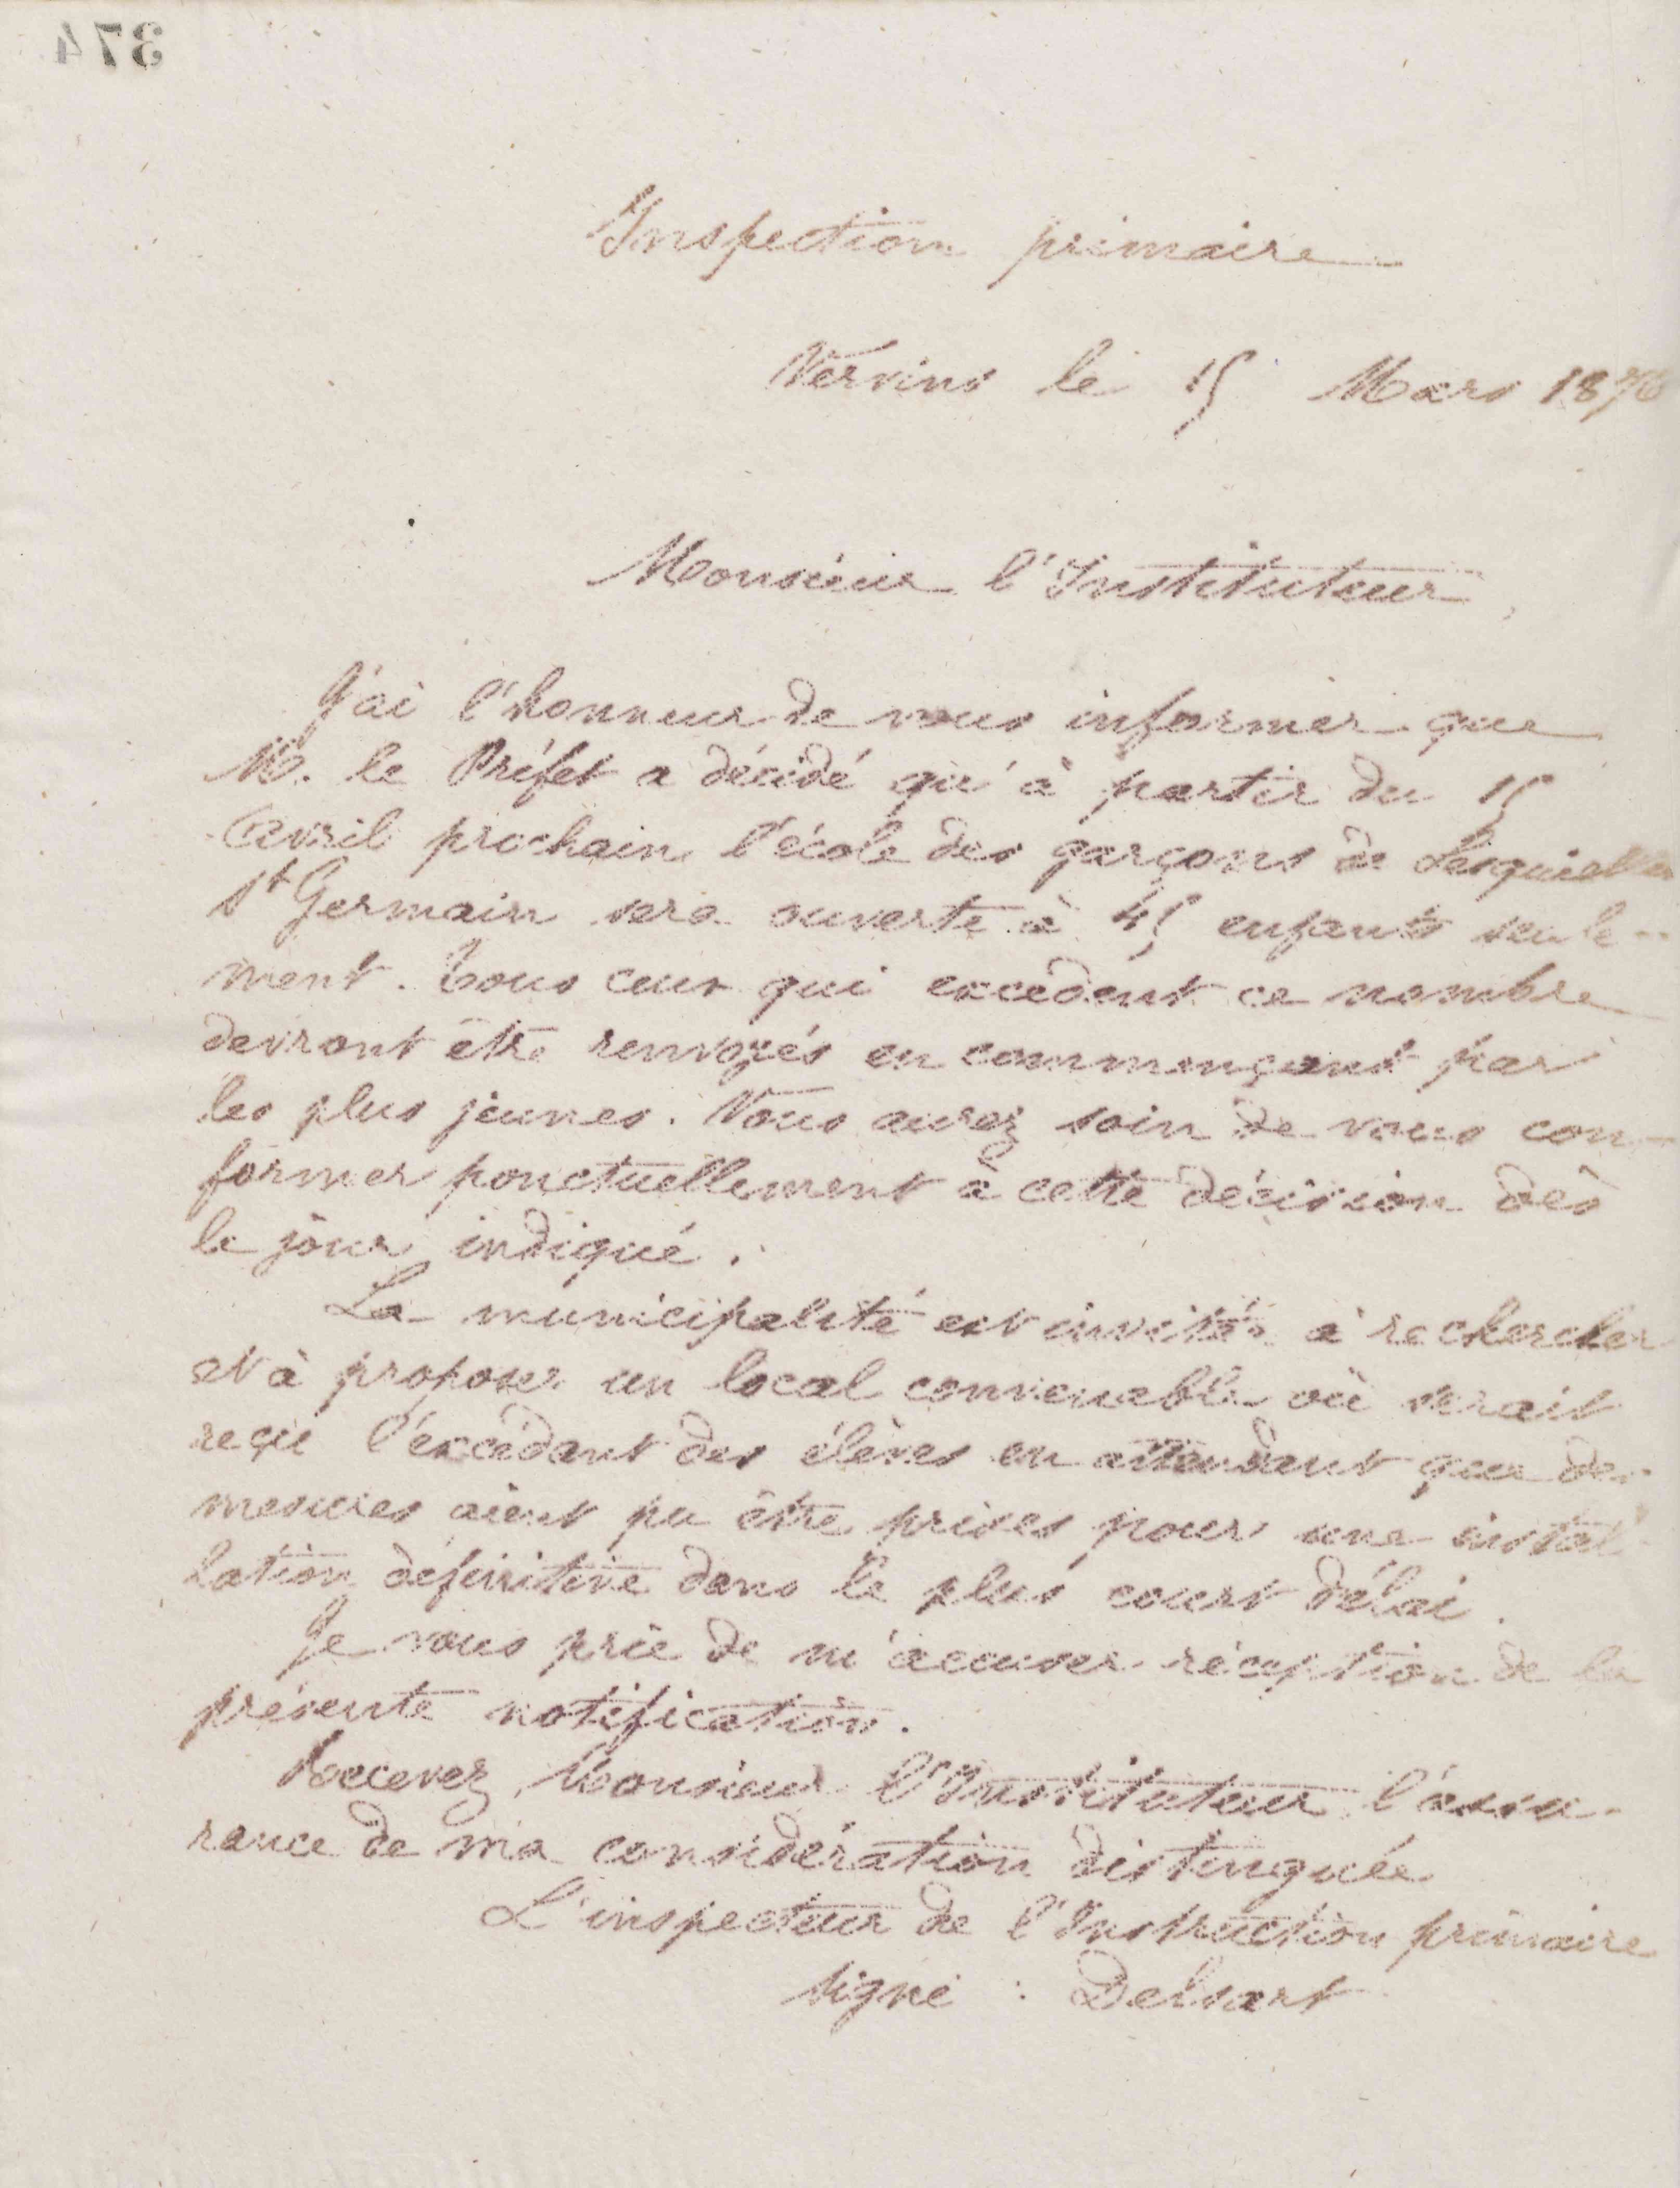 374
Inspection primaire
Vervins le 15 Mars 1876
Monsieur l'Instituteur,
J'ai l'honneur de vous informer que
M. le Préfet a décidé qu'à partir du 15
Avril prochain l'école des garçons de Lesquielles
St Germain sera ouverte à 45 enfants seule-
ment. Tous ceux qui excèdent ce nombre
devront être renvoyés en commençant par
les plus jeunes. Vous aurez soin de vous con-
former ponctuellement à cette décision dès
le jour indiqué.
La municipalité est invitée à rechercher
et à proposer un local convenable où serait
reçu l'excédant des élèves en attendant que des
mesures aient pu être prises pour une instal-
lation définitive dans le plus court délai.
Je vous prie de m'accuser réception de la
présente notification.
Recevez, Monsieur l'Instituteur l'assu-
rance de ma considération distinguée
L'inspecteur de l'Instruction primaire
signé : Delsart